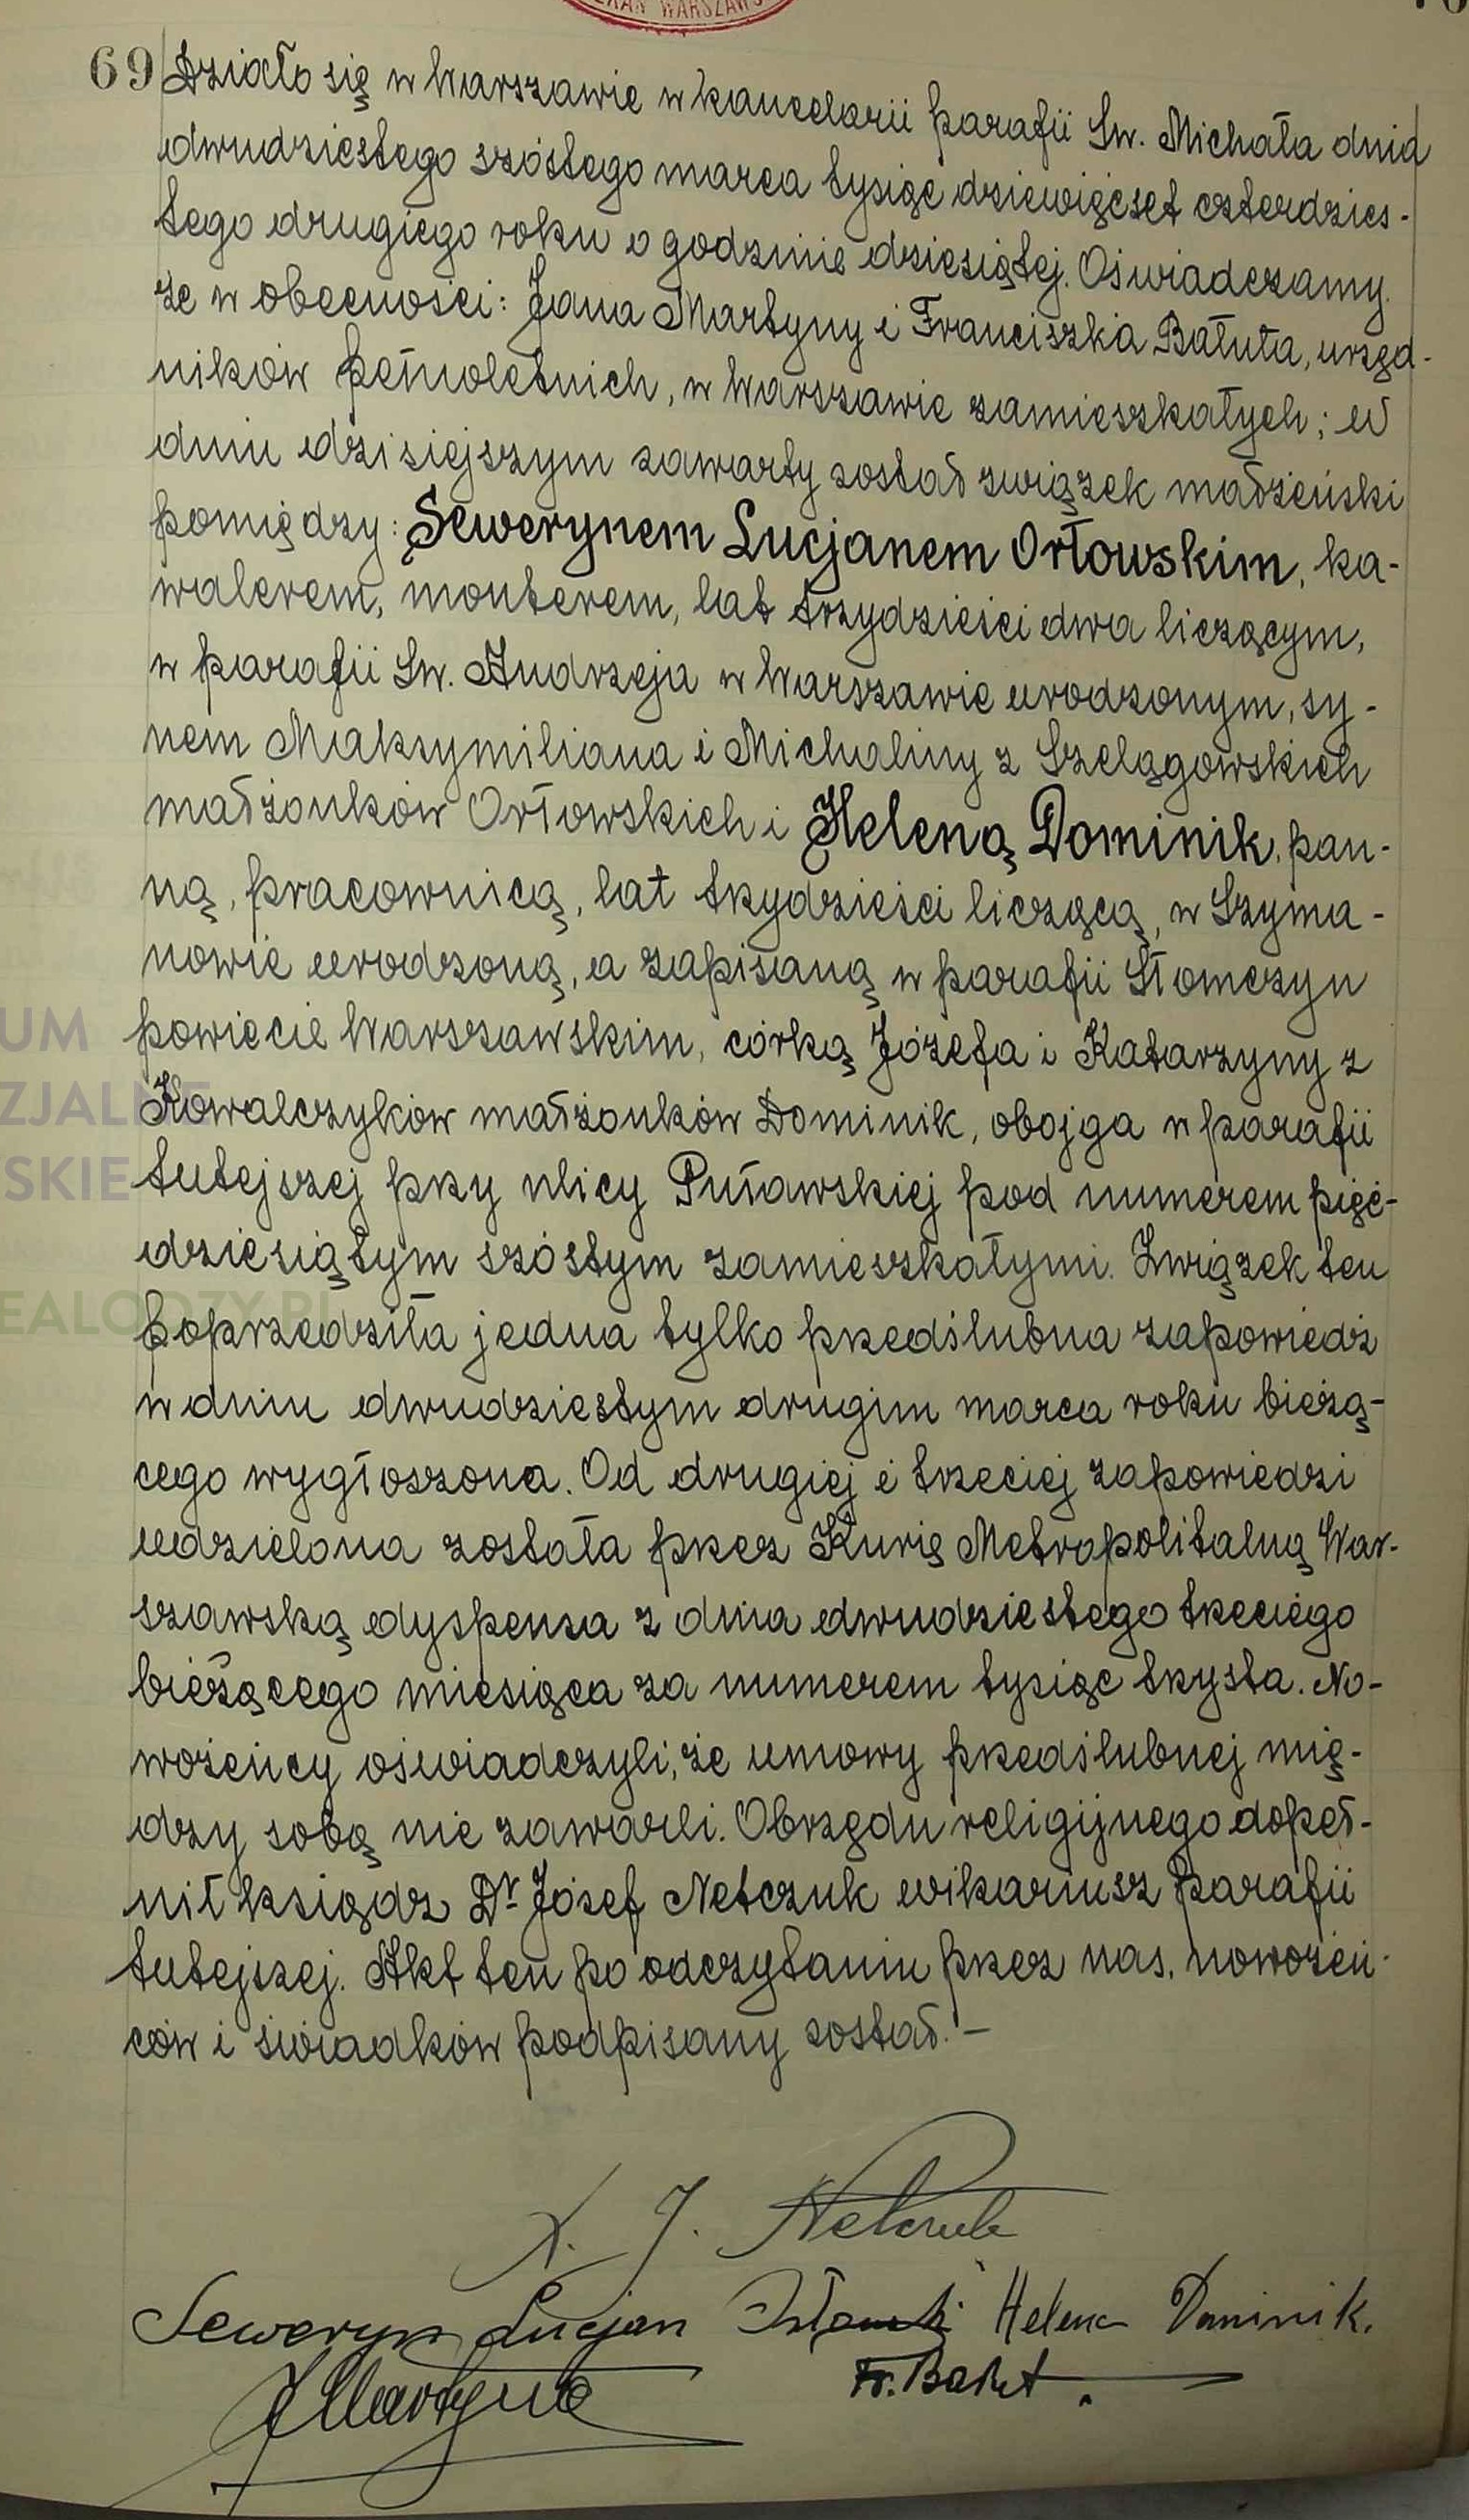 KAN WARSZAWS
69 Działo się w Warszawie w kancelarii parafii Św. Michała dnia
dwudziestego szóstego marca tysiąc dziewięćset czterdzies-
tego drugiego roku o godzinie dziesiątej. Oświadczamy
że w obecności: Jana Martyny i Franciszka Bałuta, urzęd-
ników pełnoletnich, w Warszawie zamieszkałych; w
dniu dzisiejszym zawarty został związek małżeński
pomiędzy: Sewerynem Lucjanem Orłowskim, ka-
walerem, monterem, lat trzydzieści dwa liczącym,
w parafii Św. Andrzeja w Warszawie urodzonym, sy-
nem Maksymiliana i Michaliny z Szelągowskich
małżonków Orłowskich i Heleną Dominik, pan-
ną, pracownicą, lat tkydzieści liczącą, w Szyma-
nowie urodzoną, a zapisaną w parafii Słomczyn
powiecie Warszawskim, córką Józefa i Katarzyny z
Kowalczyków małżonków Dominik, obojga w parafii
tutejszej pky ulicy Puławskiej pod numerem pięć-
dziesiątym szóstym zamieszkałymi. Związek ten
poprzedziła jedna tylko pkedślubna zapowiedź
w dniu dwudziestym drugim marca roku bieżą-
cego wygłoszona. Od drugiej i tkeciej zapowiedzi
udzielona została pkez Kurię Metropolitalną War-
szawską dyspensa z dnia dwudziestego tkeciego
bieżącego miesiąca za numerem tysiąc tkysta. No-
wożeńcy oświadczyli, że umowy pkedślubnej mię-
dzy sobą nie zawarli. Obrzędu religijnego dopeł-
nił ksiądz Dr Józef Netczuk wikariusz parafii
tutejszej. Akt ten po odczytaniu pkez nas, nowożeń-
ców i świadków podpisany został. —
X. J. Netczuk
Seweryn Lucjan Orłowski Helena Dominik.
J Martyna Fr. Bałut.
UM
ZJALNE
SKIE
EALODZY.PL